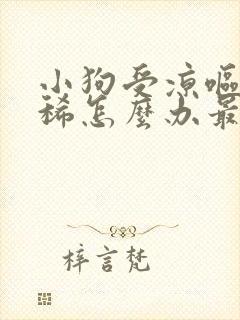 小狗受凉呕
稀怎麼办最
梓言梵